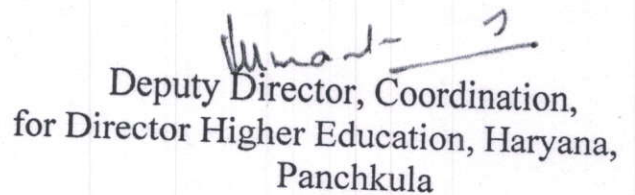 Deputy Director, Coordination,
for Director Higher Education, Haryana,
Panchkula